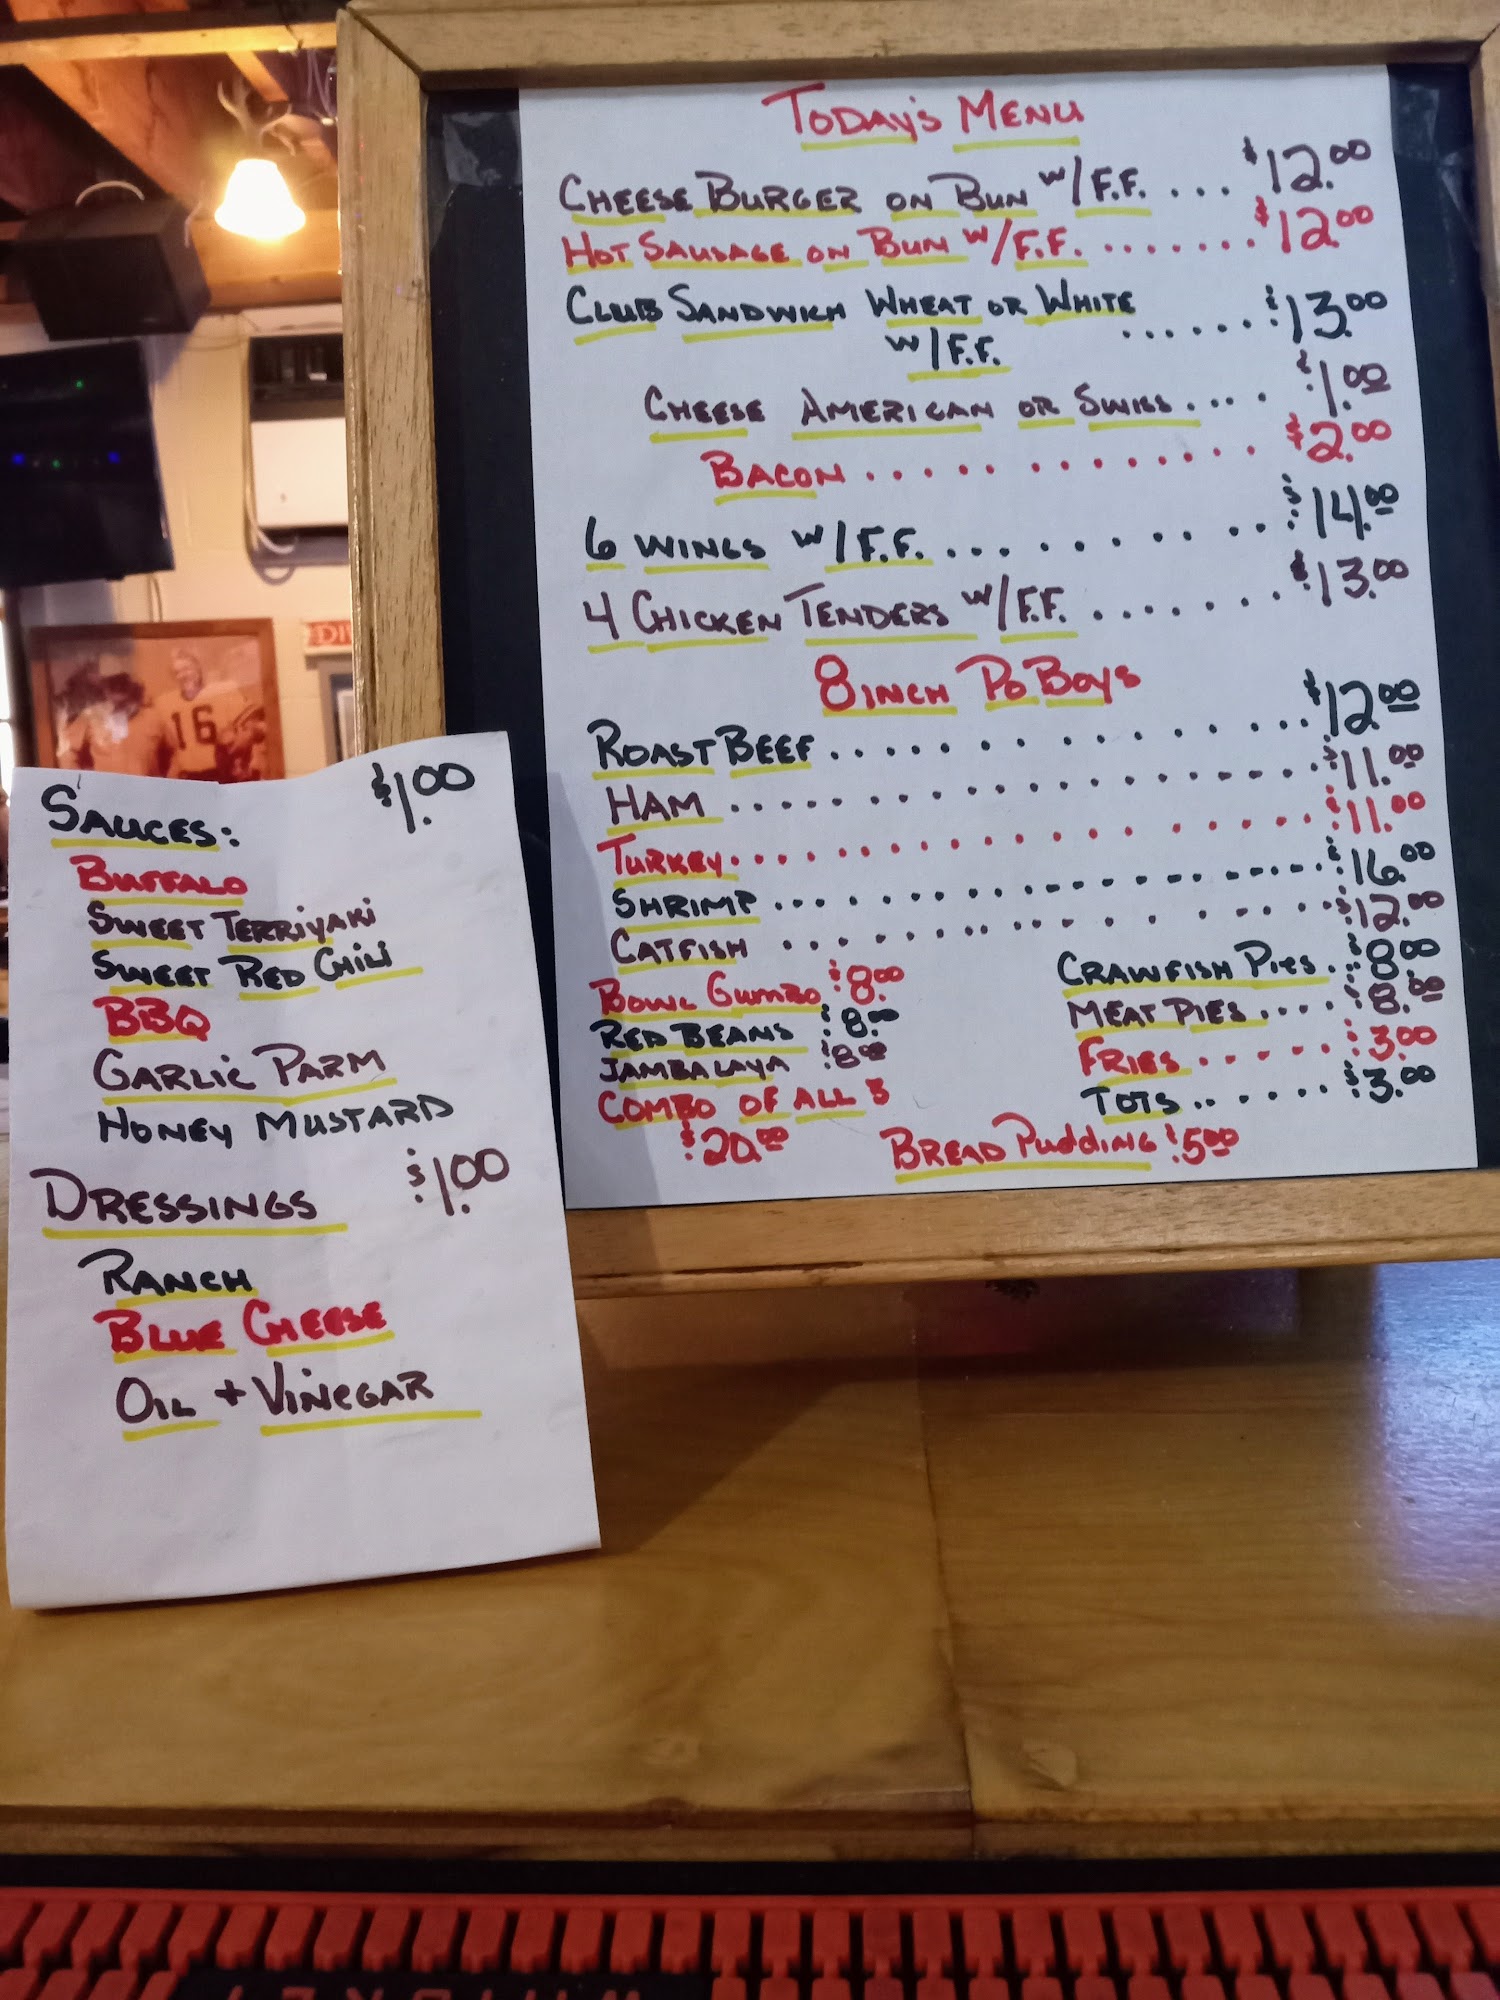 Today's Menu
Cheese Burger on Bun w/F.F. ... $12.00
Hot Sausage on Bun w/F.F. ....... $12.00
Club Sandwich Wheat or White ...... $13.00
w/F.F.
Cheese American or Swiss .... $1.00
Bacon ............. $2.00
6 Wings w/F.F. .......... $14.00
4 Chicken Tenders w/F.F. ........ $13.00
8 inch Po Boys
Roast Beef ............. $12.00
Ham ................ $11.00
Turkey ................ $11.00
Shrimp ................ $16.00
Catfish .............. $12.00
Bowl Gumbo $8.00
Red Beans $8.00
Jambalaya $8.00
Combo of all 3
$20.00
Crawfish Pies .. $8.00
Meat Pies .... $8.00
Fries ..... $3.00
Tots ...... $3.00
Bread Pudding $5.00
Sauces: $1.00
Buffalo
Sweet Terriyaki
Sweet Red Chili
BBQ
Garlic Parm
Honey Mustard
Dressings $1.00
Ranch
Blue Cheese
Oil + Vinegar
16
DI